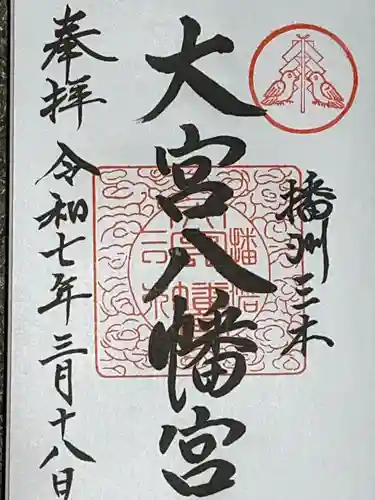 播州三木
大宮八幡宮
奉拝
令和七年三月十八日